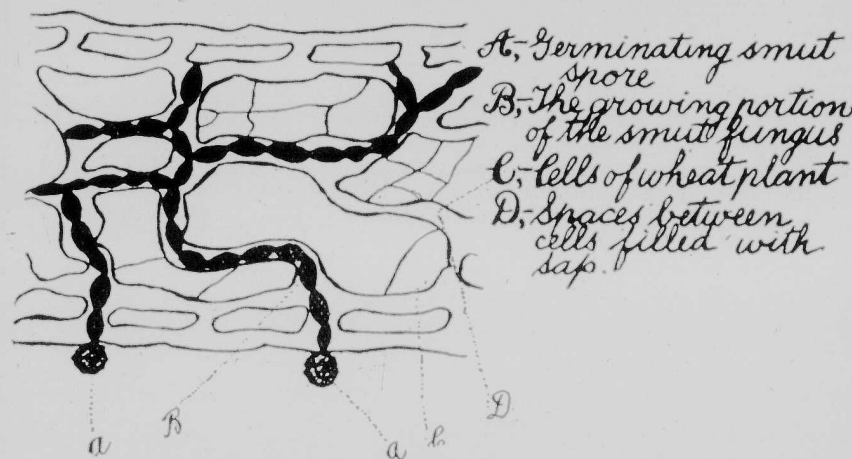 A,-Germinating smut
spore
B,-The growing portion
of the smut fungus
C,-Cells of wheat plant
D,-Spaces between
cells filled with
sap.
a
B
a
C
D